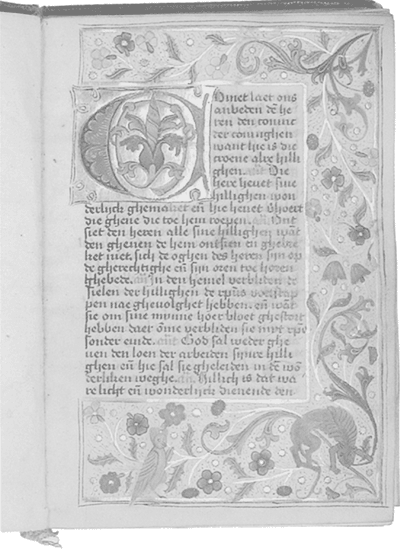 Omet laet ons
anbeden dē he
ren den coninc
der coninghen
want hie is die
croene alre hilli
ghen. Die
here hevet sine
hillighen won
derlijck ghemaket eñ hie hevet
die ghene die toe hem roepen.
siet den heren alle sine hillighen wāt
den gheuen de hem ontsien en
het niet. sich de oghen des heren sijn op
de gherechtighe eñ sijn oren toe horen
ghebede. In den hemel verbliden de
sielen der hillighen de
pen nae ghevolghet hebben. eñ wāt
sie om sine minne hoer bloet ghestort
hebben daer ōme verbliden sie myt
sonder einde. God sal weder ghe
uen den loen der arbeiden sijnre hilli
ghen eñ hie sal sie gheleiden in dē wō
derliken weghe. Hillich is dat wa
re licht eñ wonderlijck dienende den